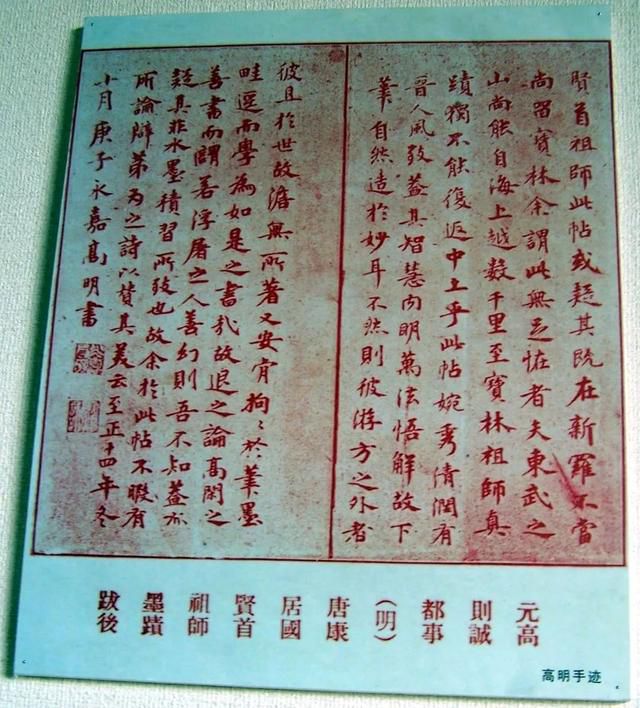 賢首祖師此帖或疑其既在新羅不當
尚留寶林余謂此無足怪者夫東武之
山尚能自海上越數千里至寶林祖師真
蹟獨不能復返中土乎此帖婉秀清潤有
晉人風致蓋其智慧内明萬法悟解故下
筆自然造於妙耳不然則彼游方之外者
彼且於世故澹無所著又安肯拘〻於筆墨
畦逕而學為如是之書哉故退之論髙閑之
善書而謂善浮屠之人善幻則吾不知蓋亦
疑其非水墨積習所致也故余於此帖不暇有
所論辨第為之詩以賛其美云至正十四年冬
十月庚子永嘉髙明書
元高
則誠
都事
(明)
唐康
居國
賢首
祖師
墨蹟
跋後
高明手迹